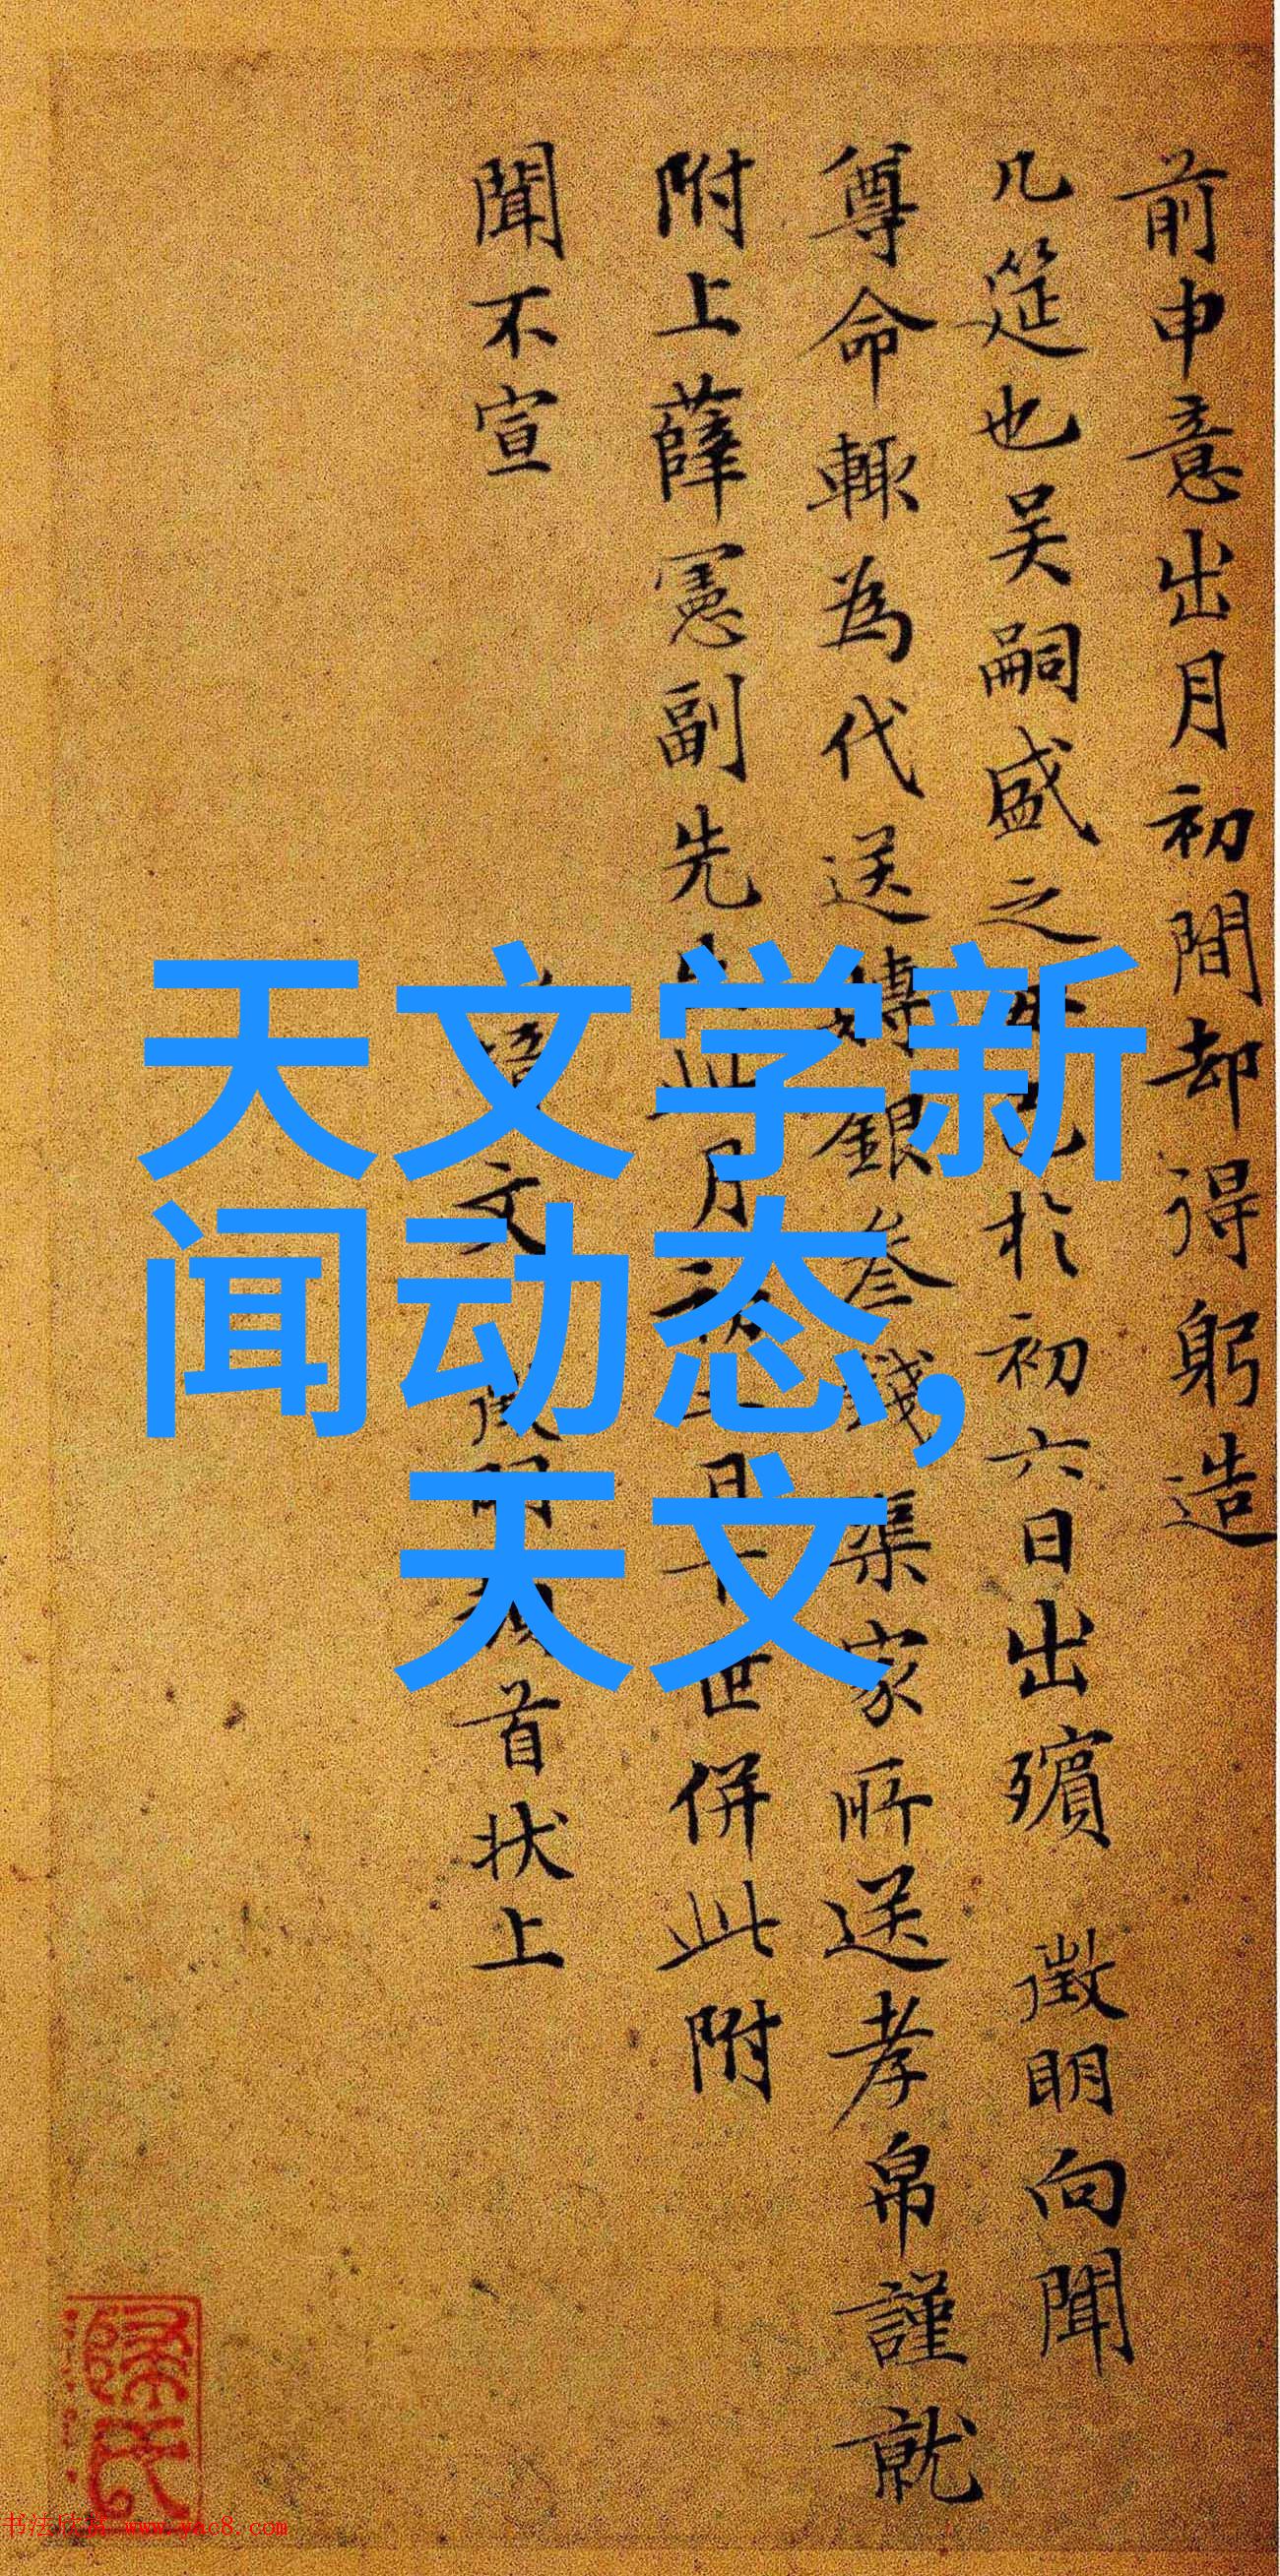 前申意出月初間却得躬造
几筵也吳嗣盛之 於初六日出殯 徵明向聞
尊命輒為代送 銀叁錢渠家所送孝帛謹就
附上薛憲副先 月 併此附
聞不宣
文 首狀上
天文学新
闻动态,
天文
书法欣赏 www.yac8.com